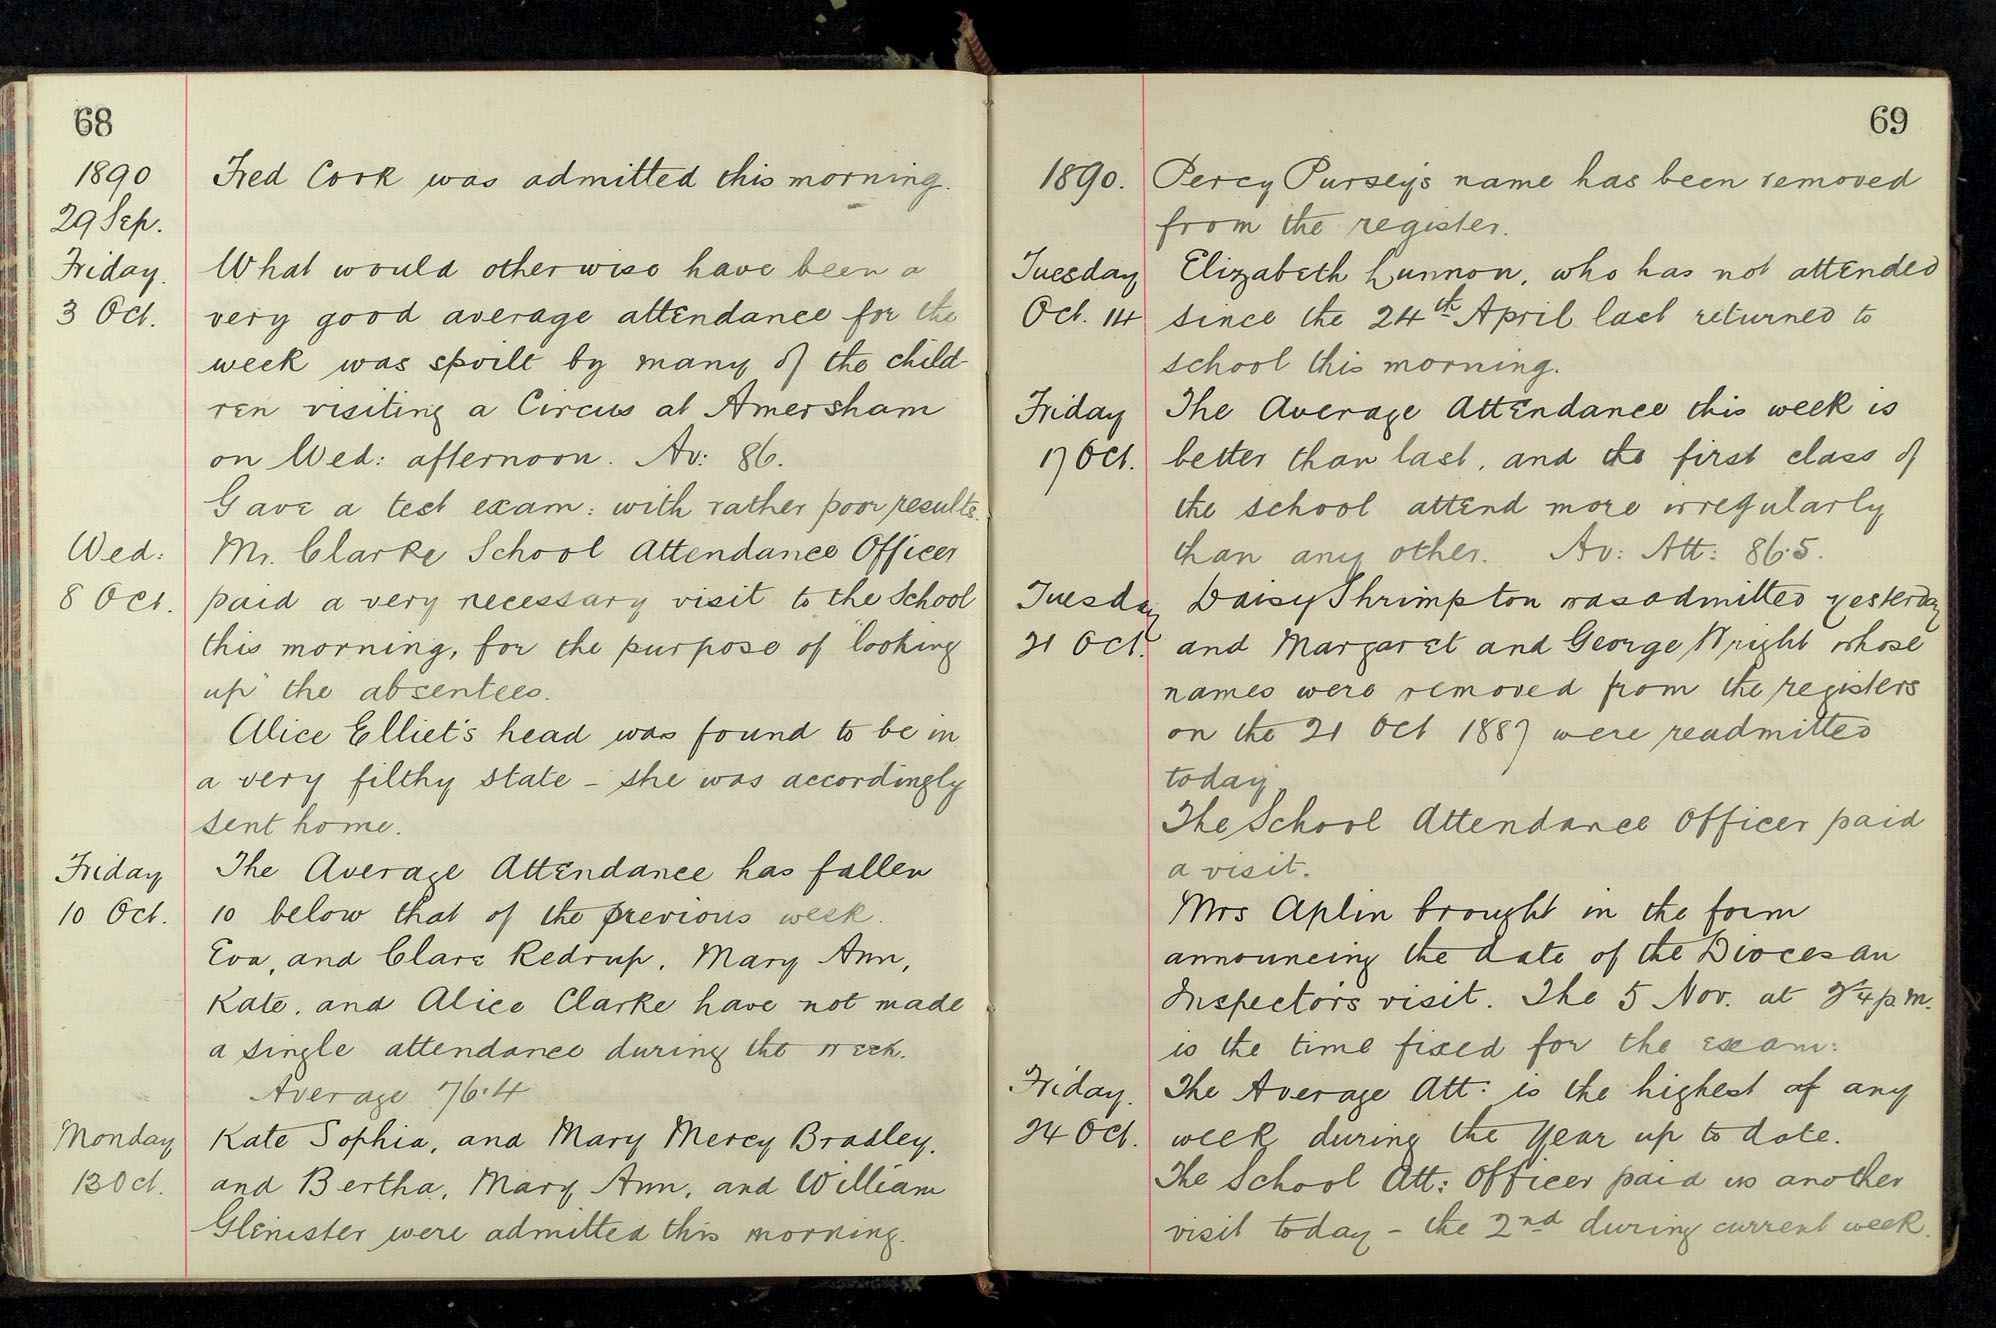 68
1890 Fred Cook was admitted this morning.
29 Sep.
Friday. What would otherwise have been a
3 Oct. very good average attendance for the
week was spoilt by many of the child-
ren visiting a Circus at Amersham
on Wed: afternoon. Av: 86.
Gave a test exam: with rather poor results.
Wed: Mr. Clarke School Attendance Officer
8 Oct. paid a very necessary visit to the School
this morning, for the purpose of "looking
up" the absentees.
Alice Elliet's head was found to be in
a very filthy state - she was accordingly
sent home.
Friday The Average Attendance has fallen
10 Oct. 10 below that of the previous week.
Eva, and Clara Redrup, Mary Ann,
Kate, and Alice Clarke have not made
a single attendance during the week.
Average 76.4
Monday Kate Sophia, and Mary Mercy Bradley,
13 Oct. and Bertha, Mary Ann, and William
Glenister were admitted this morning.
69
1890. Percy Pursey's name has been removed
from the register.
Tuesday Elizabeth Lunnon, who has not attended
Oct. 14 since the 24th April last returned to
school this morning.
Friday The Average Attendance this week is
17 Oct. better than last, and the first class of
the school attend more irregularly
than any other. Av: Att: 86.5.
Tuesday Daisy Shrimpton was admitted yesterday
21 Oct. and Margaret and George Wright whose
names were removed from the registers
on the 21 Oct 1887 were readmitted
today.
The School Attendance Officer paid
a visit.
Mrs Aplin brought in the form
announcing the date of the Diocesan
Inspector's visit. The 5 Nov. at p.m.
is the time fixed for the exam:
Friday. The Average Att: is the highest of any
24 Oct. week during the Year up to date.
The School Att: Officer paid us another
visit today - the 2nd during current week.